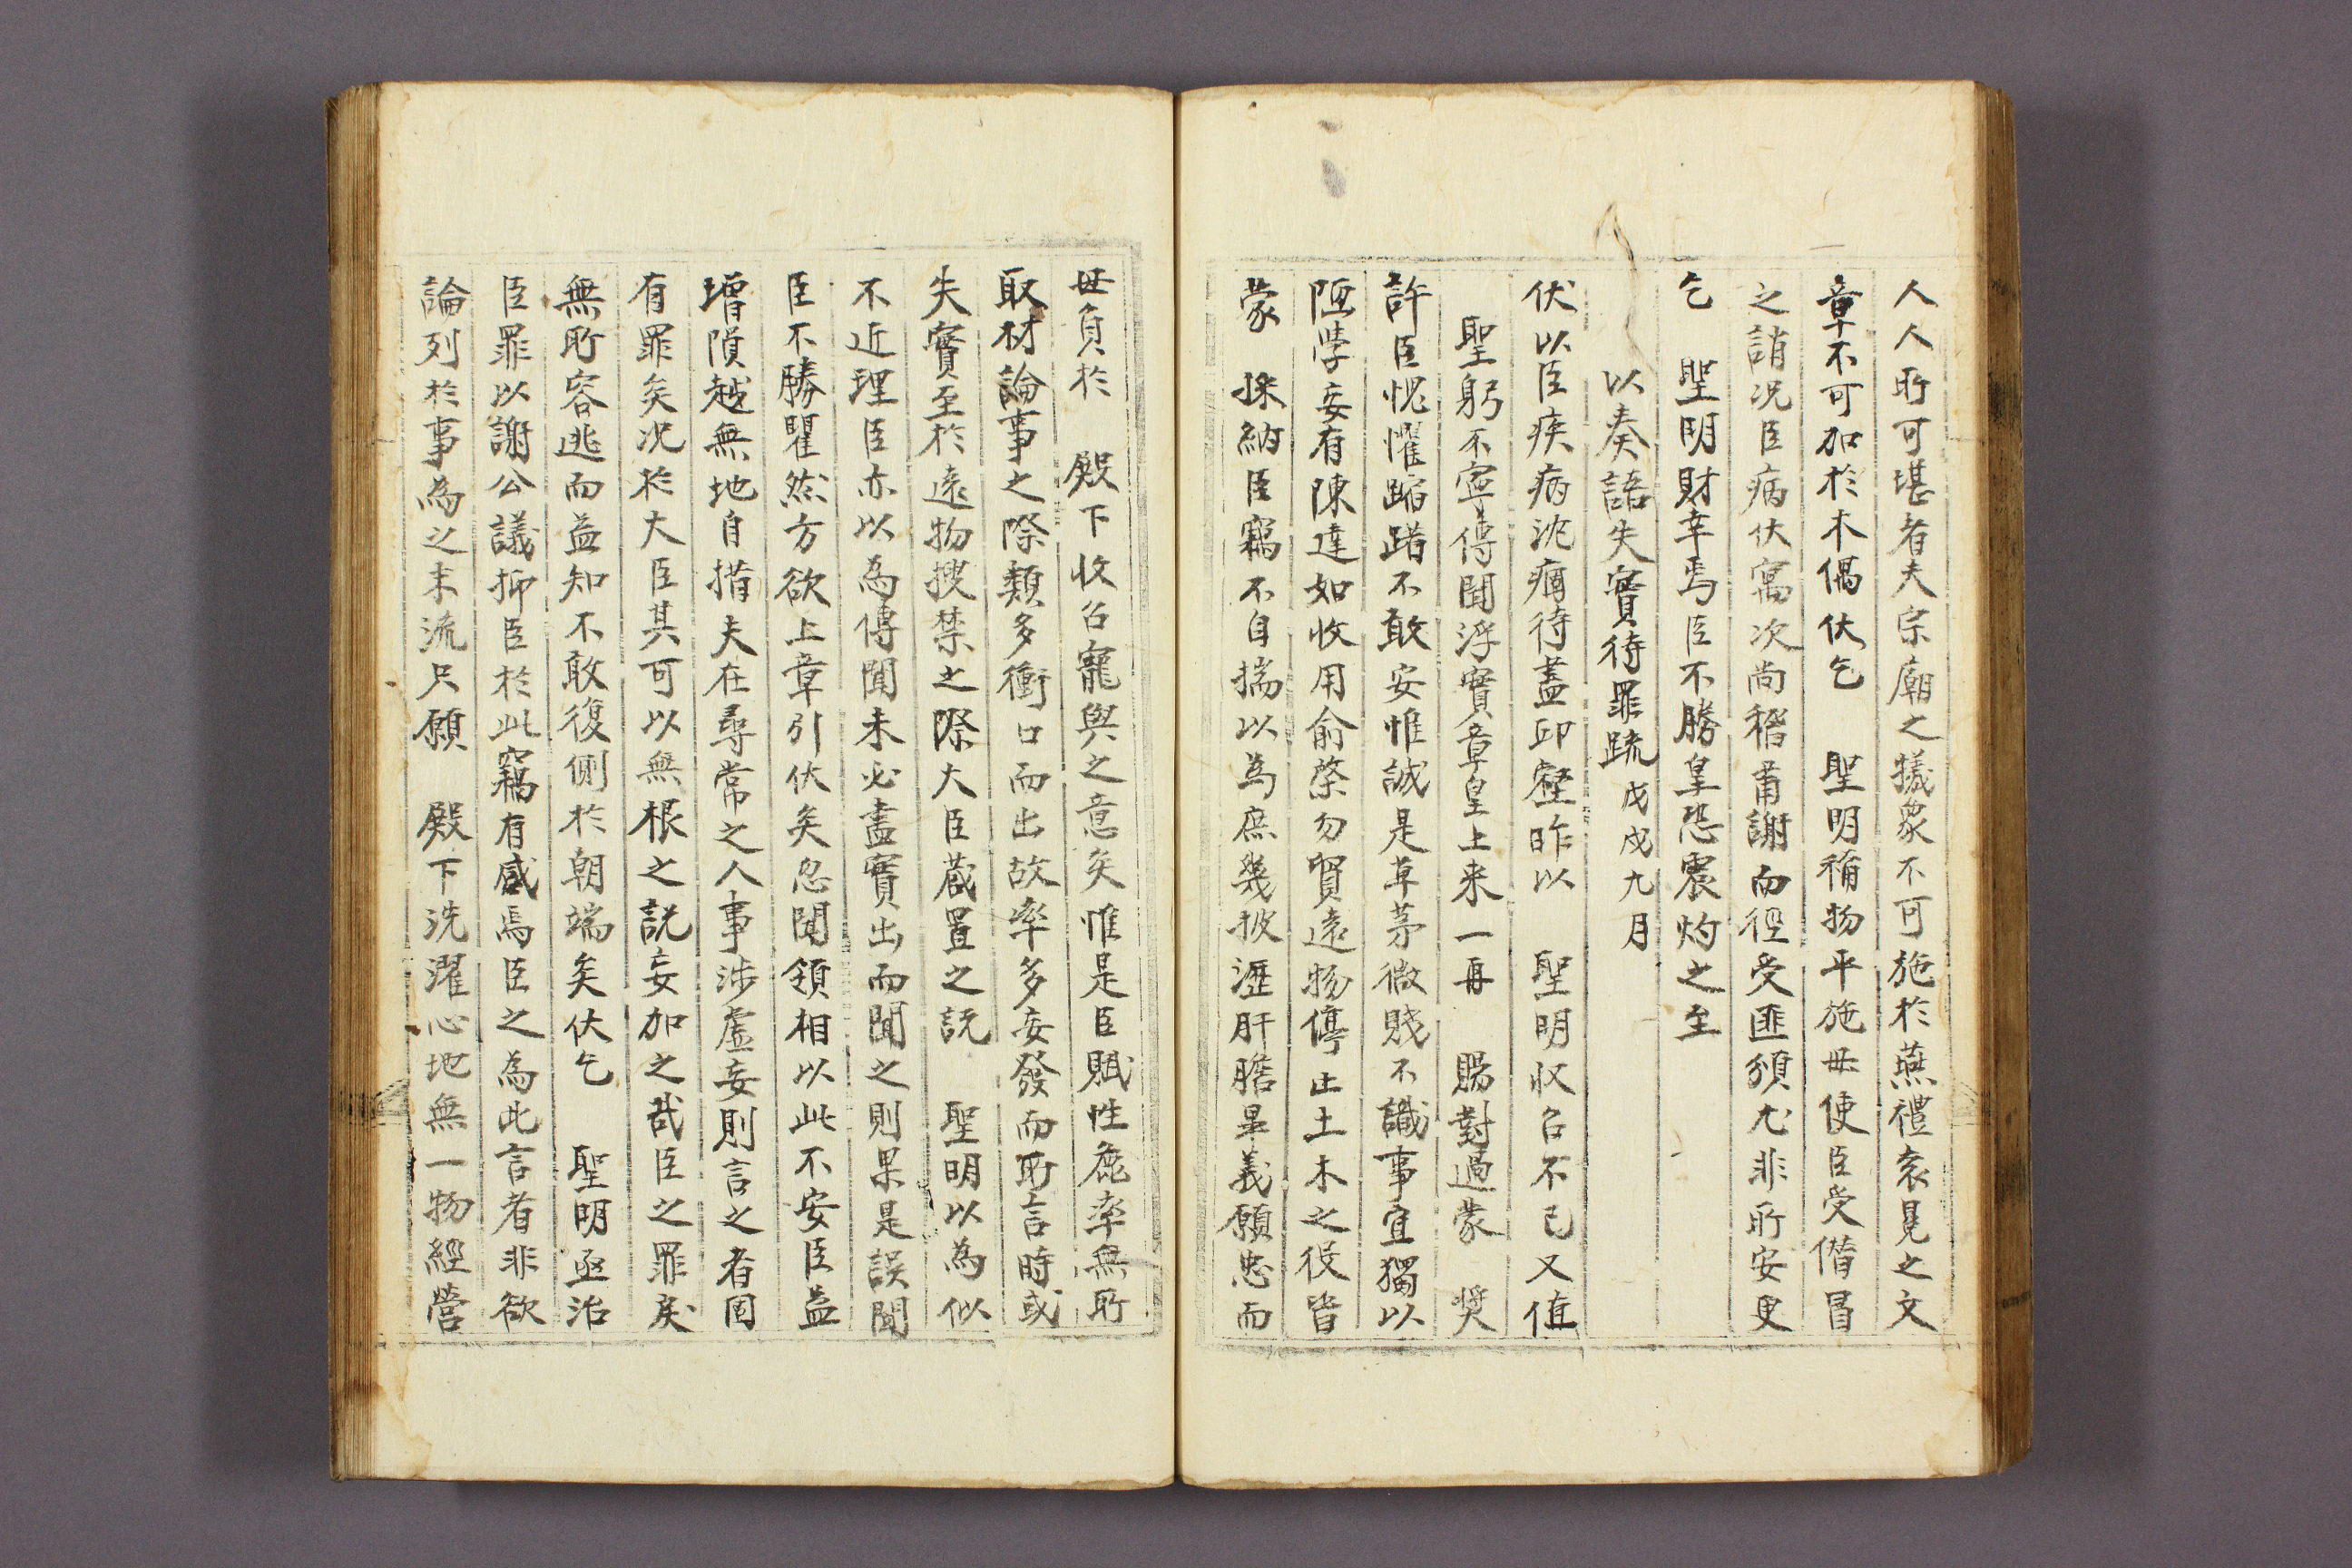 人人所可堪者夫宗廟之犧象不可施於燕禮袞冕之文
章不可加於木偶伏乞　聖明稱物平施毋使臣受僭冒
之誚況臣病伏寓次尚稽肅謝而徑受匪頒尤非所安更
乞　聖明財幸焉臣不勝皇恐震灼之至
以奏語失實待罪疏 戊戌九月
伏以臣疾病沈痼待盡邱壑昨以　聖明收召不已又值
聖躬不寧傳聞浮實章皇上来一再　賜對過蒙　奬
許臣愧懼踧踖不敢安惟誠是草茅微賤不識事宜獨以
陋學妄有陳達如收用俞棨勿貿遠物停止土木之役皆
蒙　採納臣竊不自揣以為庶幾披瀝肝膽畢義願忠而
毋負於　殿下收召寵與之意矣惟是臣賦性麁率無所
取材論事之際類多衝口而出故率多妄發而所言時或
失實至於遠物搜禁之際大臣蔵置之說　聖明以為似
不近理臣亦以為傳聞未必盡實出而聞之則果是誤聞
臣不勝瞿然方欲上章引伏矣忽聞領相以此不安臣益
增隕越無地自措夫在尋常之人事涉虛妄則言之者固
有罪矣况於大臣其可以無根之說妄加之哉臣之罪戾
無所容逃而益知不敢復側於朝端矣伏乞　聖明亟治
臣罪以謝公議抑臣於此竊有感焉臣之為此言者非欲
論列於事為之末流只願　殿下洗濯心地無一物經營